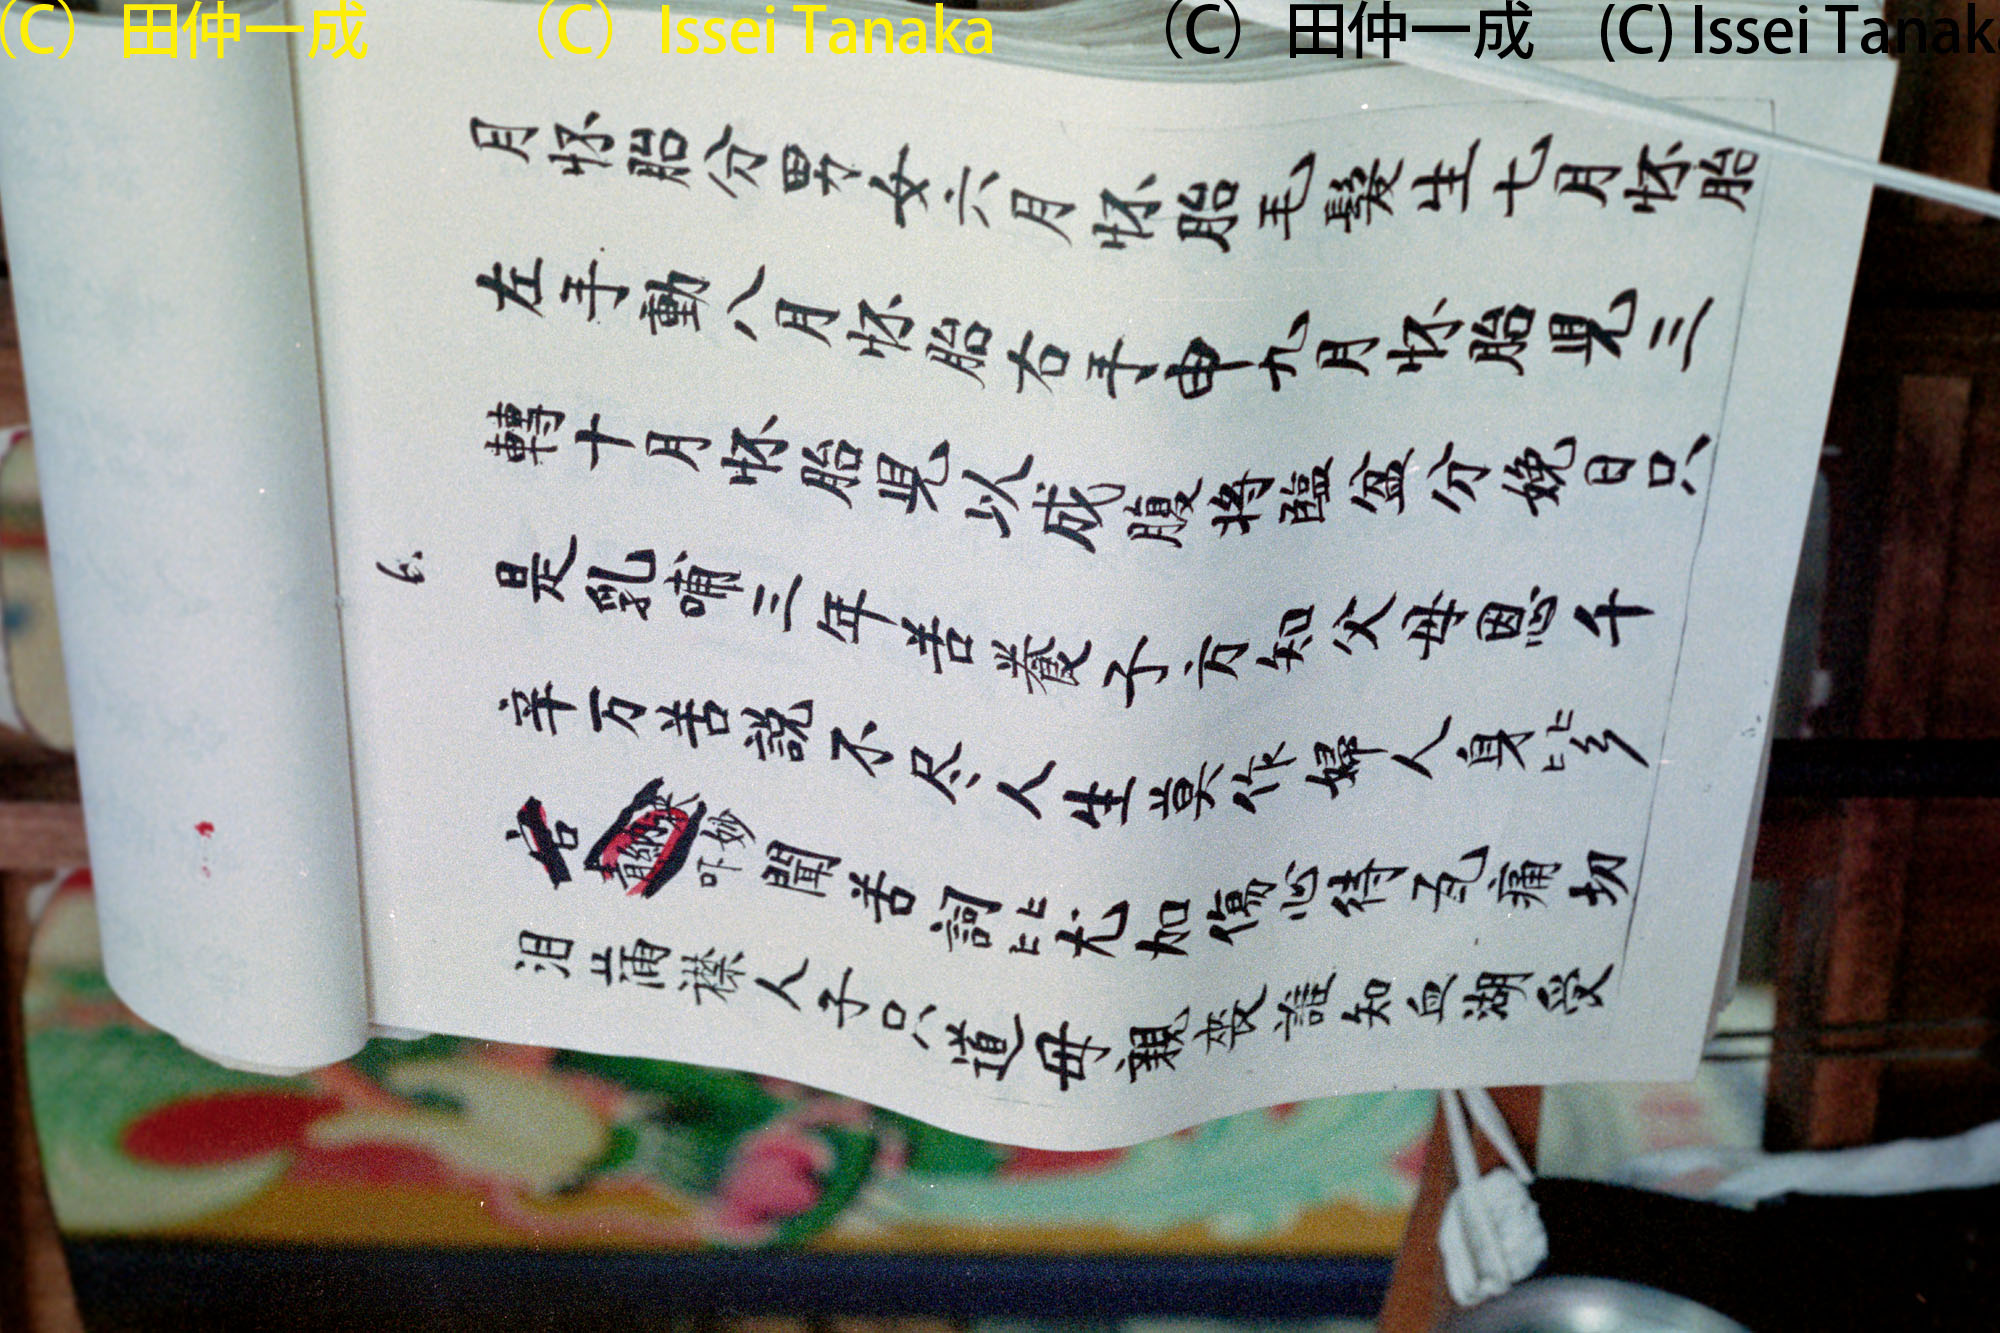 (C) 田仲一成 (C) Issei Tanaka (C) 田仲一成 (C) Issei Tanak
月怀胎分男女六月怀胎毛髮生七月怀胎
左手動八月怀胎右手申九月怀胎児三
轉十月怀胎児以成腹將臨盆分娩日只
是乳哺三年苦養子方知父母恩千
辛万苦說不尽人生莫作婦人身
白 吓妙聞苦詞尤加傷心待痛切
泪滿襟人子只道母親喪誰知血湖受